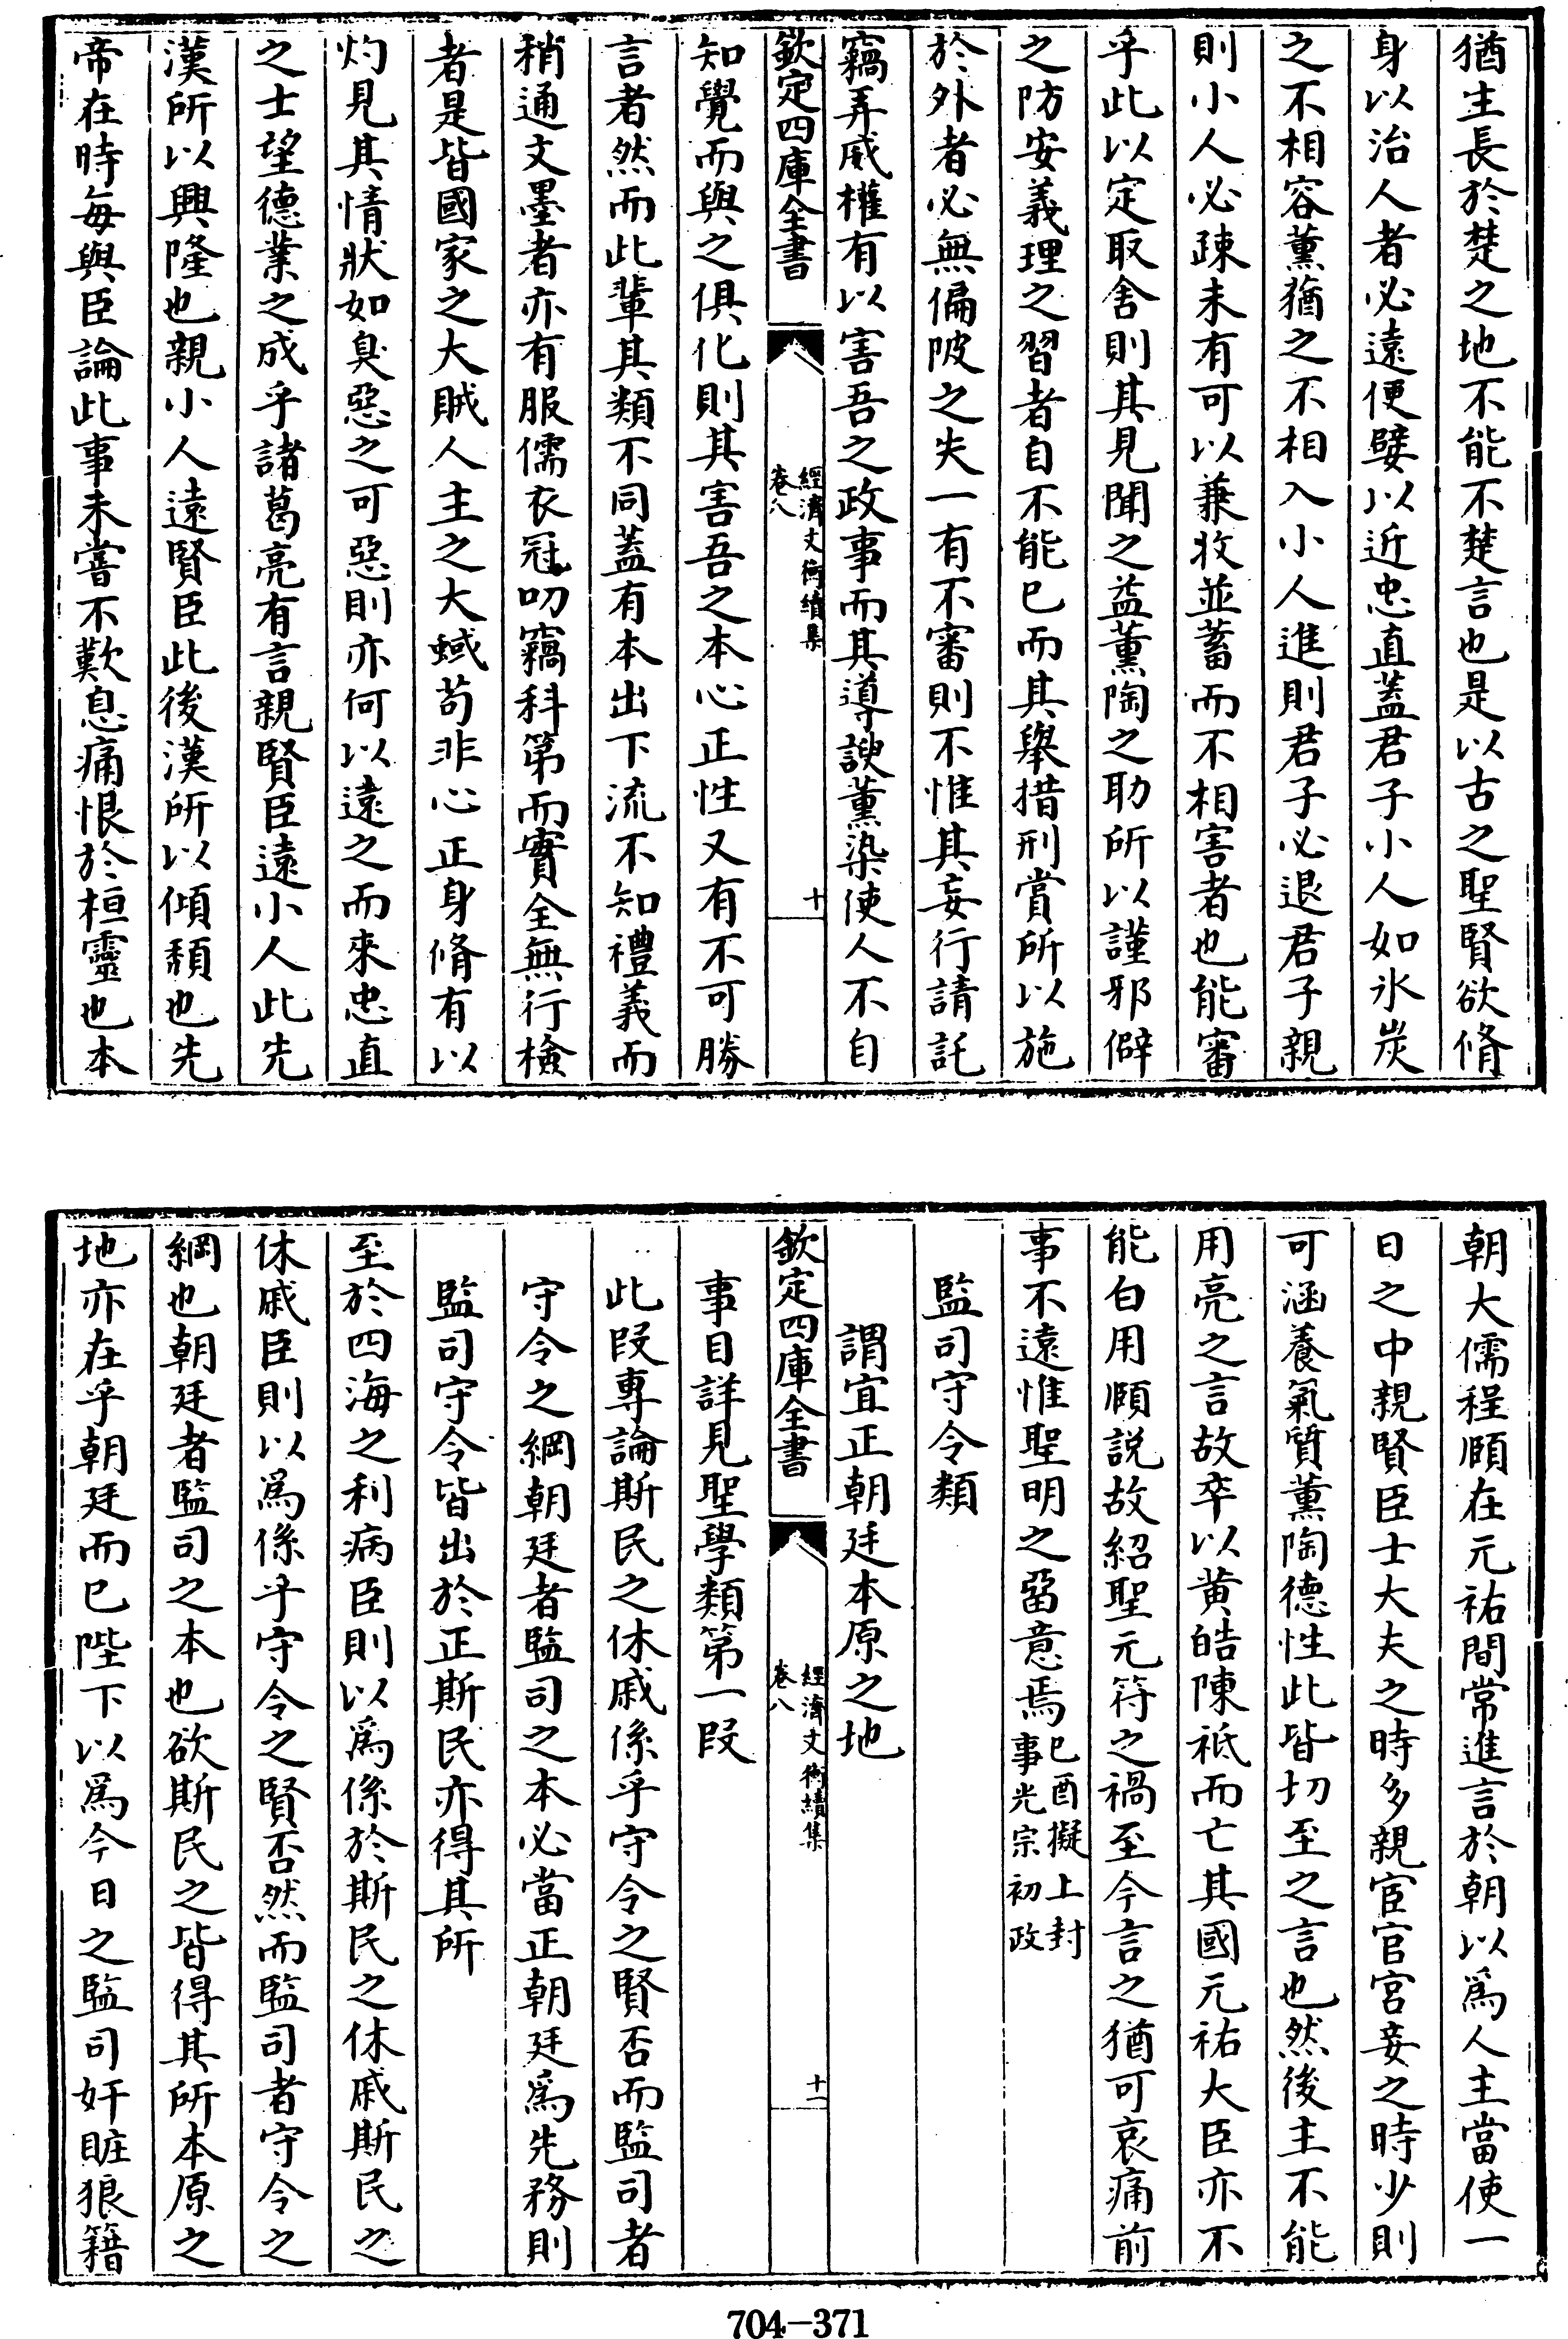 猶生長於楚之地不能不楚言也是以古之聖賢欲脩
身以治人者必遠便嬖以近忠直蓋君子小人如氷炭
之不相容薰猶之不相入小人進則君子必退君子親
則小人必疎未有可以兼收並蓄而不相害者也能審
乎此以定取舍則其見聞之益薰陶之助所以謹邪僻
之防安義理之習者自不能已而其舉措刑賞所以施
於外者必無偏陂之失一有不審則不惟其妄行請託
竊弄威權有以害吾之政事而其導諛薰染使人不自
欽定四庫全書
經濟文衡續集
卷八
十
知覺而與之俱化則其害吾之本心正性又有不可勝
言者然而此輩其類不同蓋有本出下流不知禮義而
稍通文墨者亦有服儒衣冠叨竊科第而實全無行檢
者是皆國家之大賊人主之大蜮苟非心正身脩有以
灼見其情狀如臭惡之可惡則亦何以遠之而來忠直
之士望德業之成乎諸葛亮有言親賢臣遠小人此先
漢所以興隆也親小人遠賢臣此後漢所以傾頽也先
帝在時每與臣論此事未嘗不歎息痛恨於桓靈也本
朝大儒程頤在元祐間常進言於朝以爲人主當使一
日之中親賢臣士大夫之時多親宦官宮妾之時少則
可涵養氣質薰陶德性此皆切至之言也然後主不能
用亮之言故卒以黄皓陳祗而亡其國元祐大臣亦不
能白用頤説故紹聖元符之禍至今言之猶可哀痛前
事不遠惟聖明之留意焉
己酉擬上封
事光宗初政
監司守令類
謂宜正朝廷本原之地
欽定四庫全書
經濟文衡續集
卷八
十一
事目詳見聖學類第一段
此段專論斯民之休戚係乎守令之賢否而監司者
守令之綱朝廷者監司之本必當正朝廷爲先務則
監司守令皆出於正斯民亦得其所
至於四海之利病臣則以爲係於斯民之休戚斯民之
休戚臣則以爲係乎守令之賢否然而監司者守令之
綱也朝廷者監司之本也欲斯民之皆得其所本原之
地亦在乎朝廷而已陛下以爲今日之監司奸賍狼籍
704-371